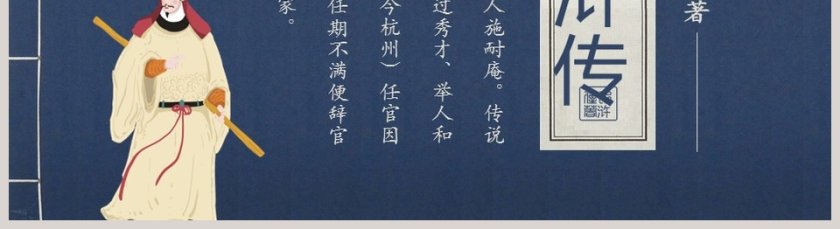 著
浒传
人施耐庵。传说
过秀才、举人和
今杭州）任官因
任期不满便辞官
家。